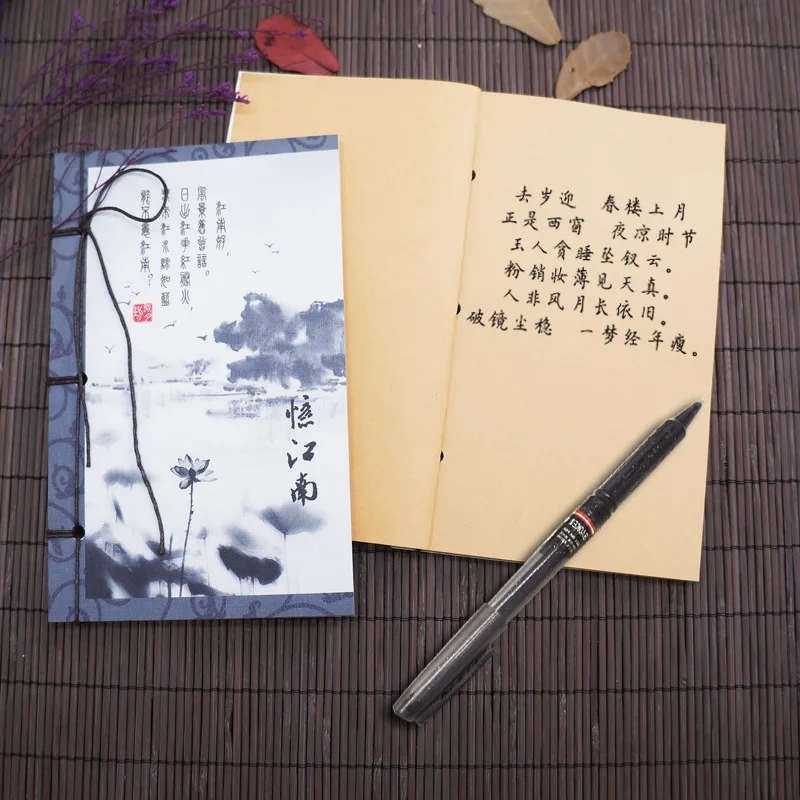 江南好，
風景舊曾諳。
日出江花紅勝火，
春來江水綠如藍
能不憶江南？
憶江南
去岁迎　春楼上月
正是西窗　夜凉时节
玉人贪睡坠钗云。
粉销妆薄见天真。
人非风月长依旧。
破镜尘稳　一梦经年瘦。